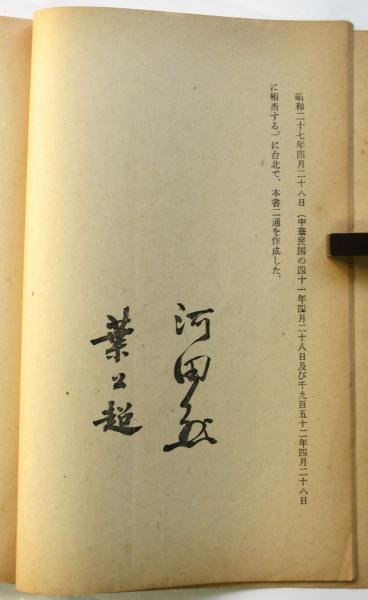 昭和二十七年四月二十八日(中華民国の四十一年四月二十八日及び千九百五十二年四月二十八日
に相当する。)に台北で、本書二通を作成した。
河田烈
葉公超